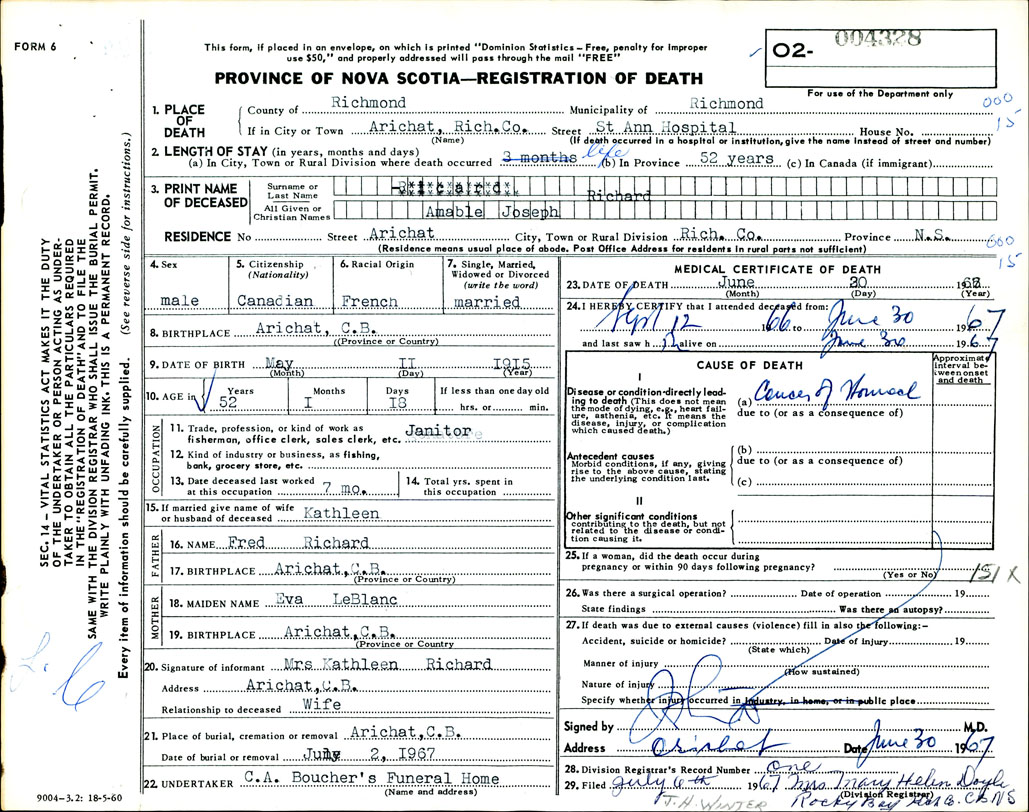 FORM 6
This form, if placed in an envelope, on which is printed "Dominion Statistics – Free, penalty for improper
use $50," and properly addressed will pass through the mail "FREE"
PROVINCE OF NOVA SCOTIA—REGISTRATION OF DEATH
O2- 004328
For use of the Department only
000
15
1. PLACE OF DEATH
County of Richmond Municipality of Richmond
If in City or Town Arichat, Rich.Co. Street St Ann Hospital House No.
(Name) (If death occurred in a hospital or institution, give the name instead of street and number)
2. LENGTH OF STAY (in years, months and days)
(a) In City, Town or Rural Division where death occurred 3 months life (b) In Province 52 years (c) In Canada (if immigrant)
3. PRINT NAME OF DECEASED
Surname or Last Name Richard
All Given or Christian Names Amable Joseph
RESIDENCE No Street Arichat City, Town or Rural Division Rich. Co. Province N.S.
(Residence means usual place of abode. Post Office Address for residents in rural parts not sufficient)
000
15
4. Sex male
5. Citizenship (Nationality) Canadian
6. Racial Origin French
7. Single, Married, Widowed or Divorced (write the word) married
8. BIRTHPLACE Arichat, C.B.
(Province or Country)
9. DATE OF BIRTH May II I9I5
(Month) (Day) (Year)
10. AGE in Years 52 Months I Days I8 If less than one day old hrs. or min.
OCCUPATION
11. Trade, profession, or kind of work as fisherman, office clerk, sales clerk, etc. Janitor
12. Kind of industry or business, as fishing, bank, grocery store, etc.
13. Date deceased last worked at this occupation 7 mo.
14. Total yrs. spent in this occupation
15. If married give name of wife or husband of deceased Kathleen
FATHER
16. NAME Fred Richard
17. BIRTHPLACE Arichat,C.B.
(Province or Country)
MOTHER
18. MAIDEN NAME Eva LeBlanc
19. BIRTHPLACE Arichat,C.B.
(Province or Country
20. Signature of informant Mrs Kathleen Richard
Address Arichat,C.B.
Relationship to deceased Wife
21. Place of burial, cremation or removal Arichat,C.B.
Date of burial or removal July 2, I967
22. UNDERTAKER C.A. Boucher's Funeral Home
(Name and address)
MEDICAL CERTIFICATE OF DEATH
23. DATE OF DEATH June 30 1967
(Month) (Day) (Year)
24. I HEREBY CERTIFY that I attended deceased from:
Sept 12 1966 to June 30 1967
and last saw h im alive on June 30 1967
CAUSE OF DEATH
Approximate interval between onset and death
I
Disease or condition directly leading to death (This does not mean the mode of dying, e.g., heart failure, asthenia, etc. It means the disease, injury, or complication which caused death.)
(a) Cancer of Stomach
due to (or as a consequence of)
Antecedent causes
Morbid conditions, if any, giving rise to the above cause, stating the underlying condition last.
(b)
due to (or as a consequence of)
(c)
II
Other significant conditions contributing to the death, but not related to the disease or condition causing it.
25. If a woman, did the death occur during
pregnancy or within 90 days following pregnancy?
(Yes or No) 151 X
26. Was there a surgical operation? Date of operation 19
State findings Was there an autopsy?
27. If death was due to external causes (violence) fill in also the following:–
Accident, suicide or homicide? Date of injury 19
(State which)
Manner of injury
(How sustained)
Nature of injury
Specify whether injury occurred in industry, in home, or in public place
Signed by M.D.
Address Arichat Date June 30 1967
28. Division Registrar's Record Number one
29. Filed July 6th 1967 Mrs Mary Helen Doyle
(Division Registrar)
J.H. WINTER Rocky Bay
SEC. 14 – VITAL STATISTICS ACT MAKES IT THE DUTY
OF THE UNDERTAKER OR PERSON ACTING AS UNDER-
TAKER TO OBTAIN ALL THE PARTICULARS REQUIRED
IN THE "REGISTRATION OF DEATH" AND TO FILE THE
SAME WITH THE DIVISION REGISTRAR WHO SHALL ISSUE THE BURIAL PERMIT.
WRITE PLAINLY WITH UNFADING INK. THIS IS A PERMANENT RECORD.
Every item of information should be carefully supplied. (See reverse side for instructions.)
9004–3.2: 18-5-60